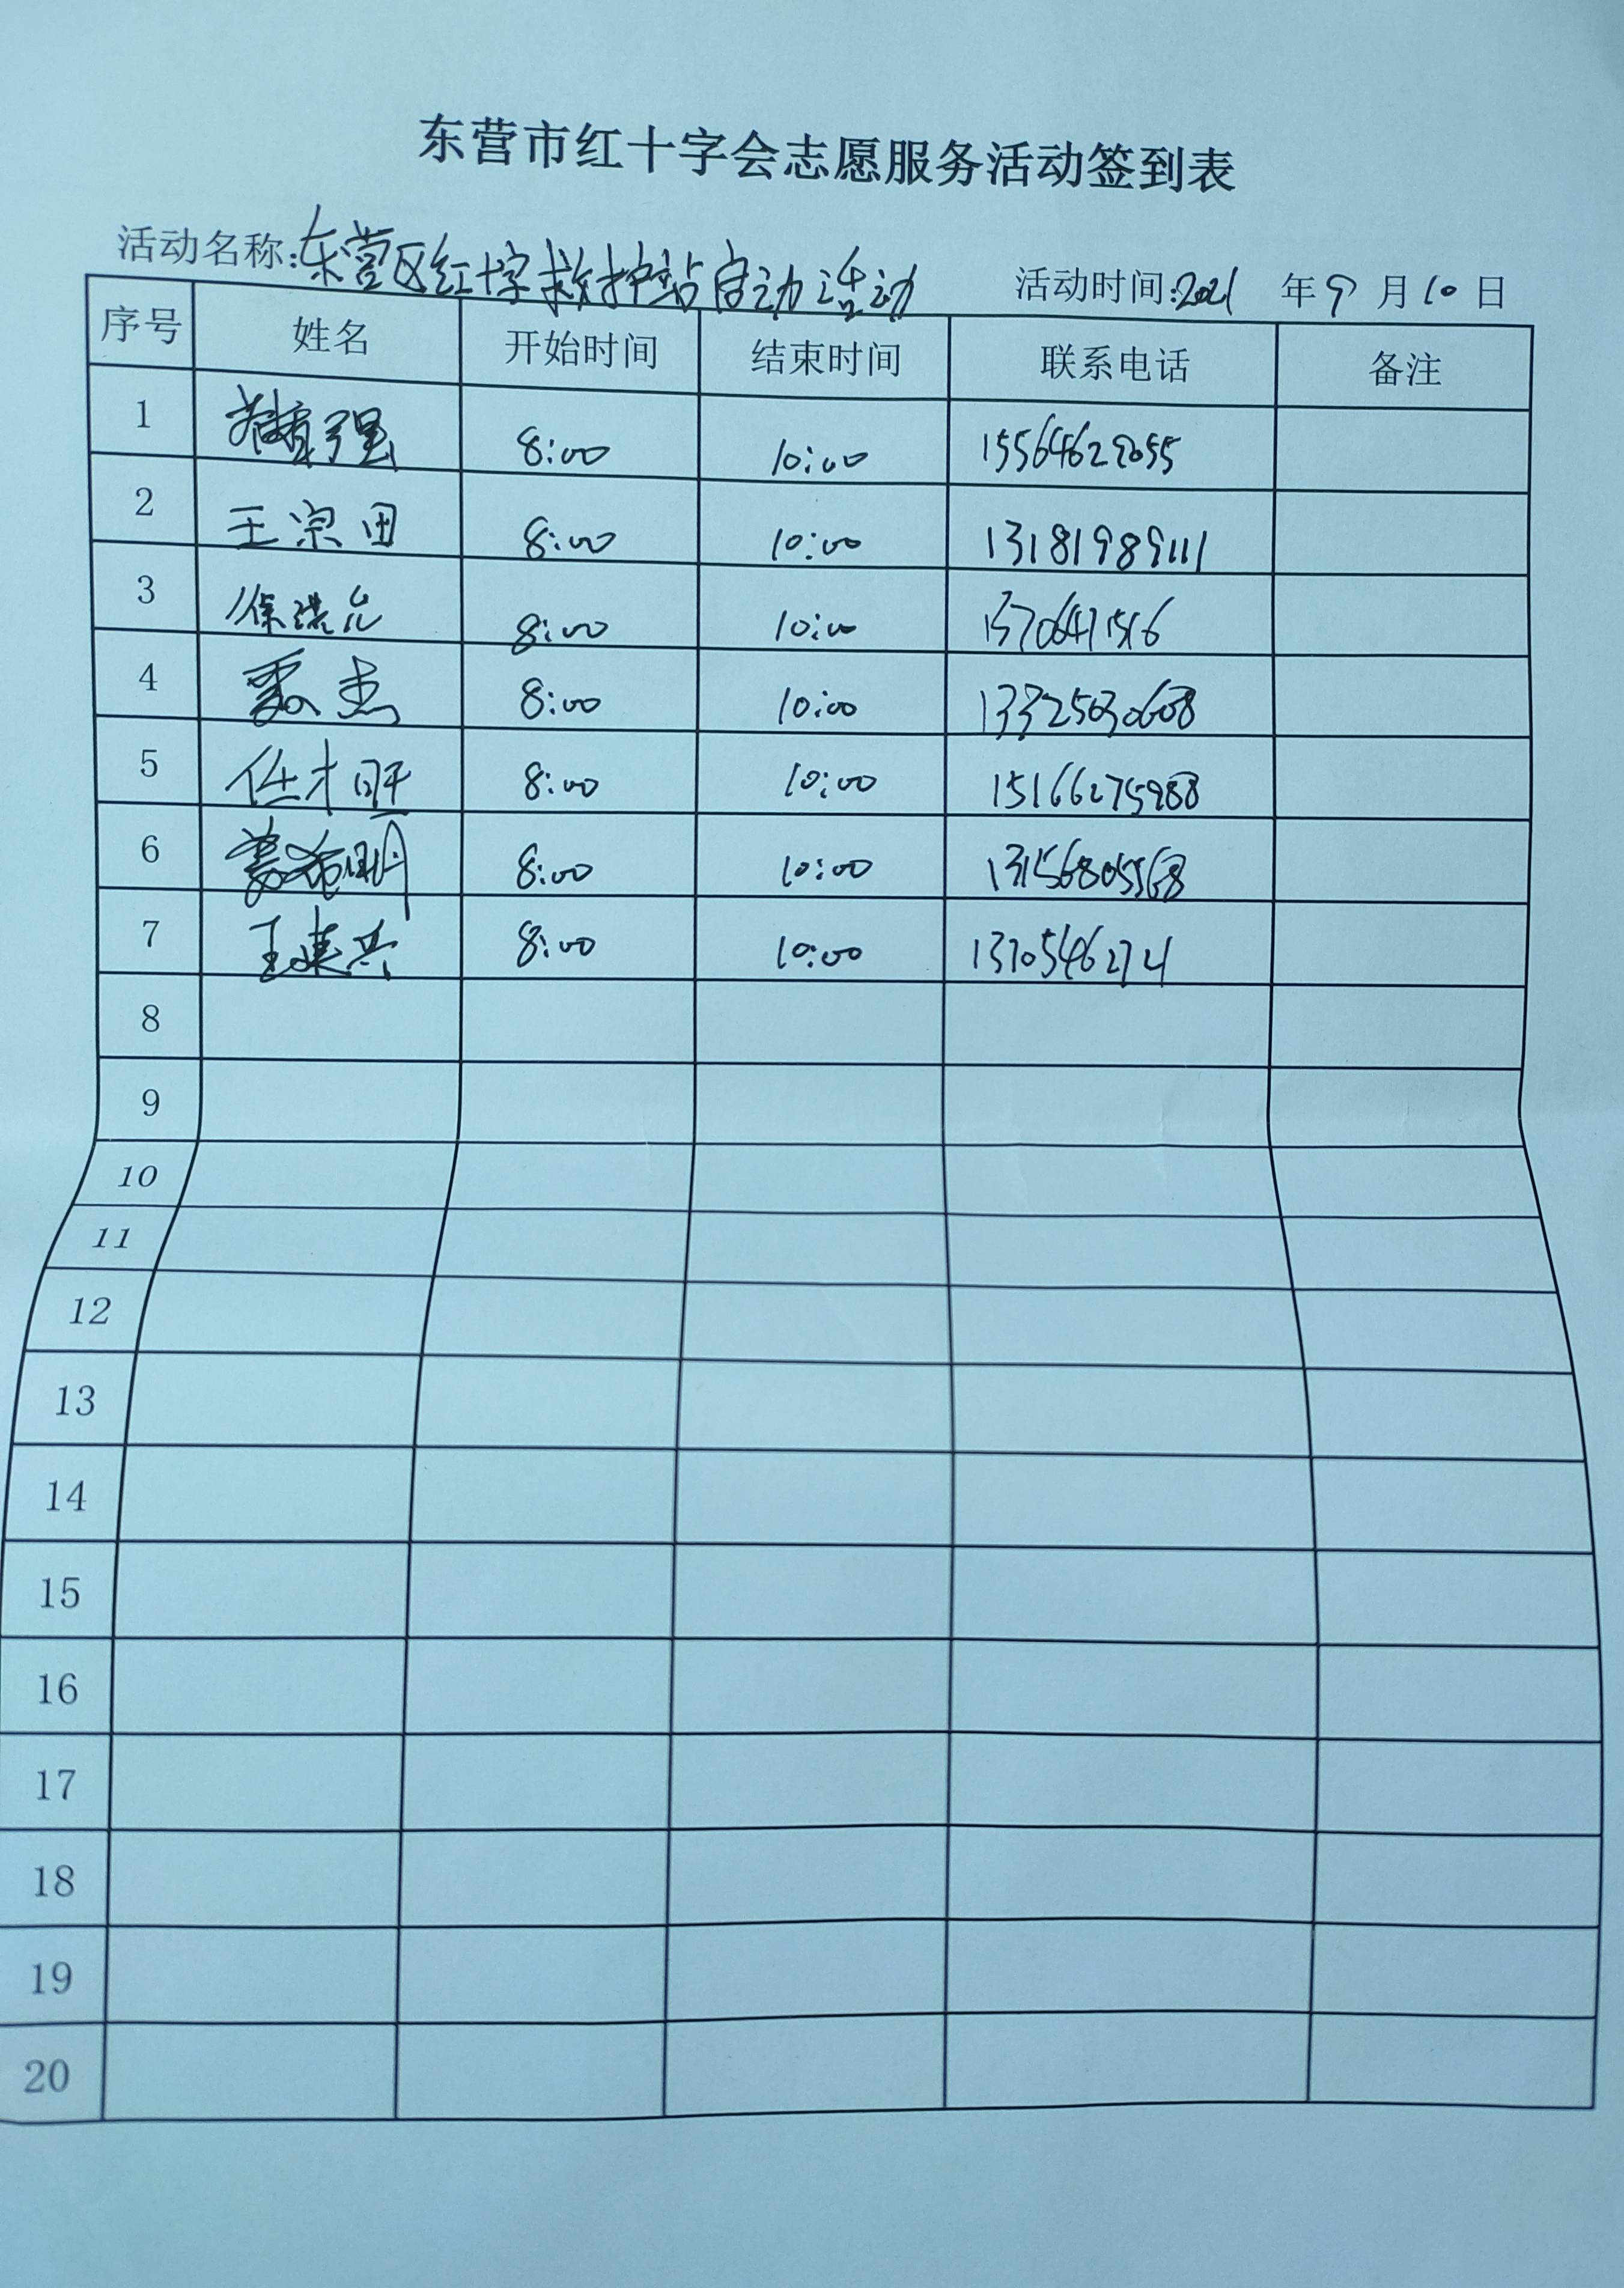 东营市红十字会志愿服务活动签到表
活动名称:东营区红十字救护站启动活动 活动时间:2021 年 9 月 10 日
序号 姓名 开始时间 结束时间 联系电话 备注
1 强 8:00 10:00
2 王宗田 8:00 10:00 13181989111
3 徐洪 8:00 10:00
4 杰 8:00 10:00
5 任才 8:00 10:00 15166275988
6 姜希明 8:00 10:00 13156805568
7 王建兵 8:00 10:00
8
9
10
11
12
13
14
15
16
17
18
19
20